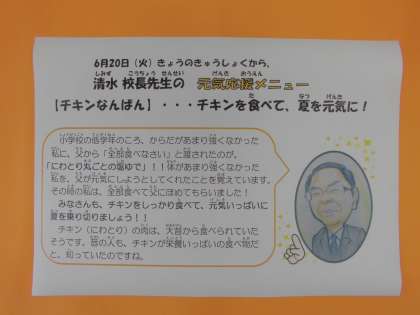 6月20日（火）きょうのきゅうしょくから、
清水 校長先生の 元気応援メニュー
【チキンなんばん】・・・チキンを食べて、夏を元気に！
小学校の低学年のころ、からだがあまり強くなかった
私に、父から「全部食べなさい」と渡されたのが、
「にわとり丸ごとの塩ゆで」！！体があまり強くなかった
私を、父が元気にしようとしてくれたことを覚えています。
その時の私は、全部食べて父にほめてもらいました！
みなさんも、チキンをしっかり食べて、元気いっぱいに
夏を乗り切りましょう！！
チキン（にわとり）の肉は、大昔から食べられていた
そうです。昔の人も、チキンが栄養いっぱいの食べ物だ
と、知っていたのですね。